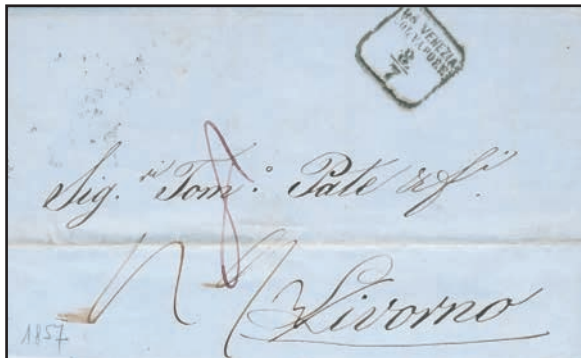 DA VENEZIA
COL VAPORE
8
7
Sig.ri Tom.o Pate & f.i
8
Livorno
1857